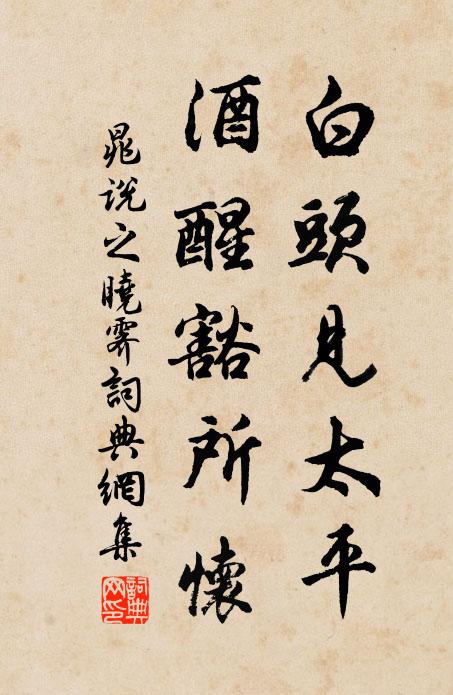 白頭見太平
酒醒豁所懷
晁說之曉霽詞典網集
詞典網印